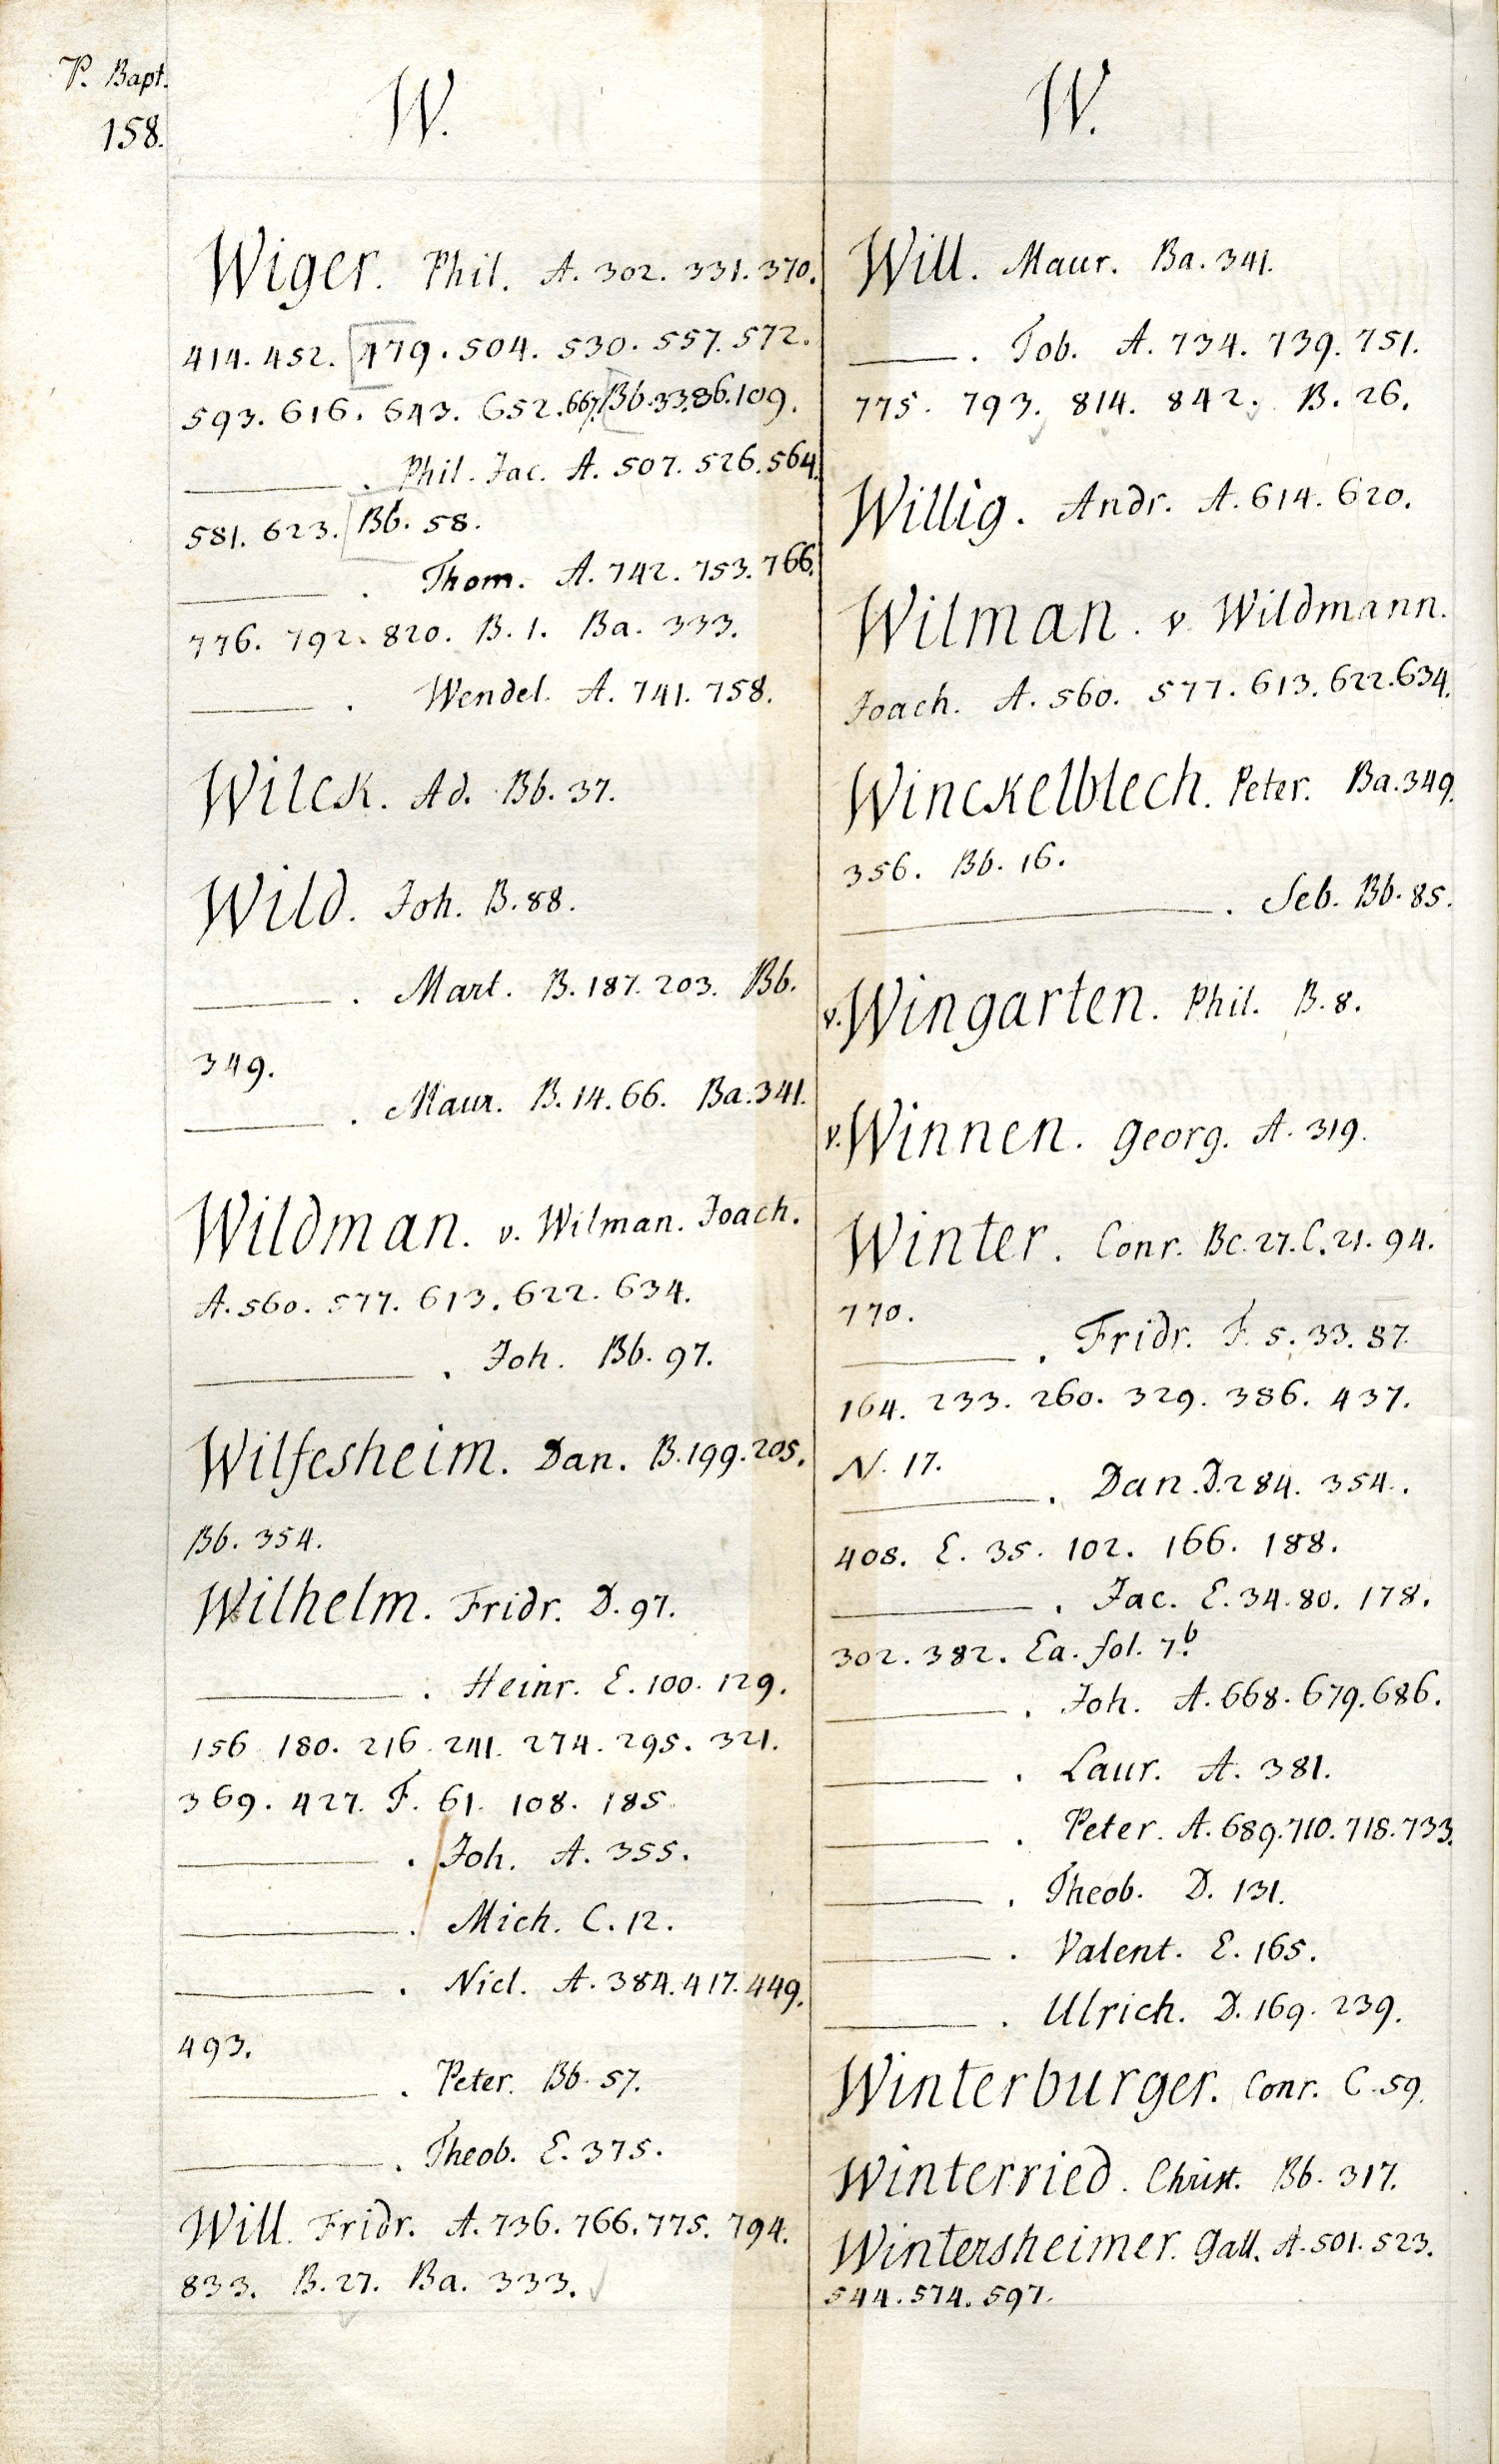 P. Bapt.
158.
W.
Wiger. Phil. A. 302. 331. 370.
414. 452. 479. 504. 530. 557. 572.
593. 616. 643. 652. 667. Bb. 33. 86. 109.
———. Phil. Jac. A. 507. 526. 564.
581. 623. Bb. 58.
———. Thom. A. 742. 753. 766.
776. 792. 820. B. 1. Ba. 333.
———. Wendel. A. 741. 758.
Wilck. Ad. Bb. 37.
Wild. Joh. B. 88.
———. Mart. B. 187. 203. Bb.
349.
———. Maur. B. 14. 66. Ba. 341.
Wildman. v. Wilman. Joach.
A. 560. 577. 613. 622. 634.
———. Joh. Bb. 97.
Wilfesheim. Dan. B. 199. 205.
Bb. 354.
Wilhelm. Fridr. D. 97.
———. Heinr. E. 100. 129.
156. 180. 216. 241. 274. 295. 321.
369. 427. F. 61. 108. 185.
———. Joh. A. 355.
———. Mich. C. 12.
———. Nicl. A. 384. 417. 449.
493.
———. Peter. Bb. 57.
———. Theob. E. 375.
Will. Fridr. A. 736. 766. 775. 794.
833. B. 27. Ba. 333.
W.
Will. Maur. Ba. 341.
———. Tob. A. 734. 739. 751.
775. 793. 814. 842. B. 26.
Willig. Andr. A. 614. 620.
Wilman. v. Wildmann.
Joach. A. 560. 577. 613. 622. 634.
Winckelblech. Peter. Ba. 349.
356. Bb. 16.
———. Seb. Bb. 85.
v. Wingarten. Phil. B. 8.
v. Winnen. Georg. A. 319.
Winter. Conr. Bc. 27. C. 21. 94.
770.
———. Fridr. F. 5. 33. 87.
164. 233. 260. 329. 386. 437.
N. 17.
———. Dan. D. 284. 354.
408. E. 35. 102. 166. 188.
———. Jac. E. 34. 80. 178.
302. 382. Ea. fol. 7.b
———. Joh. A. 668. 679. 686.
———. Laur. A. 381.
———. Peter. A. 689. 710. 718. 733.
———. Theob. D. 131.
———. Valent. E. 165.
———. Ulrich. D. 169. 239.
Winterburger. Conr. C. 59.
Winterried. Christ. Bb. 317.
Wintersheimer. Gall. A. 501. 523.
544. 574. 597.